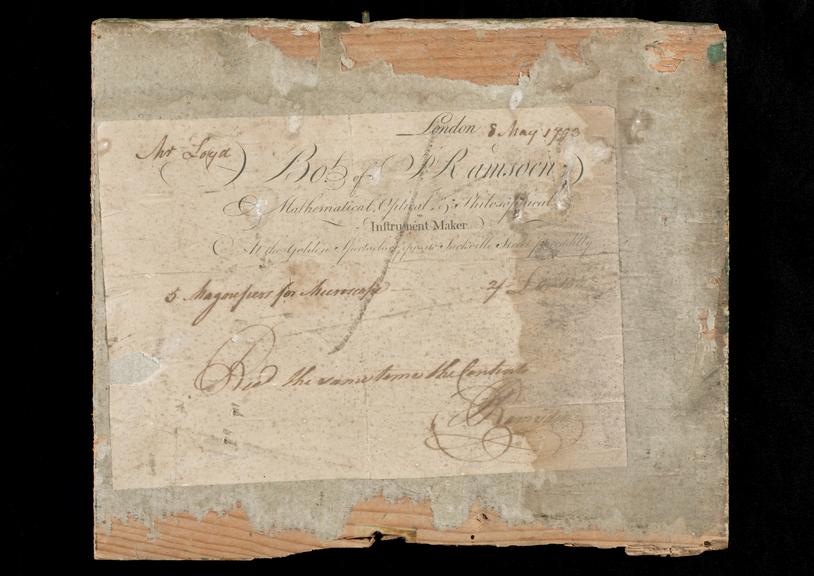 London 8 May 1793
Mr Loyd
Bot. of J. Ramsden
Mathematical, Optical, & Philosophical
Instrument Maker
At the Golden Spectacles opposite Sackville Street Piccadilly
5 Magnefiers for
Recd the same time the Contents
J Ramsden